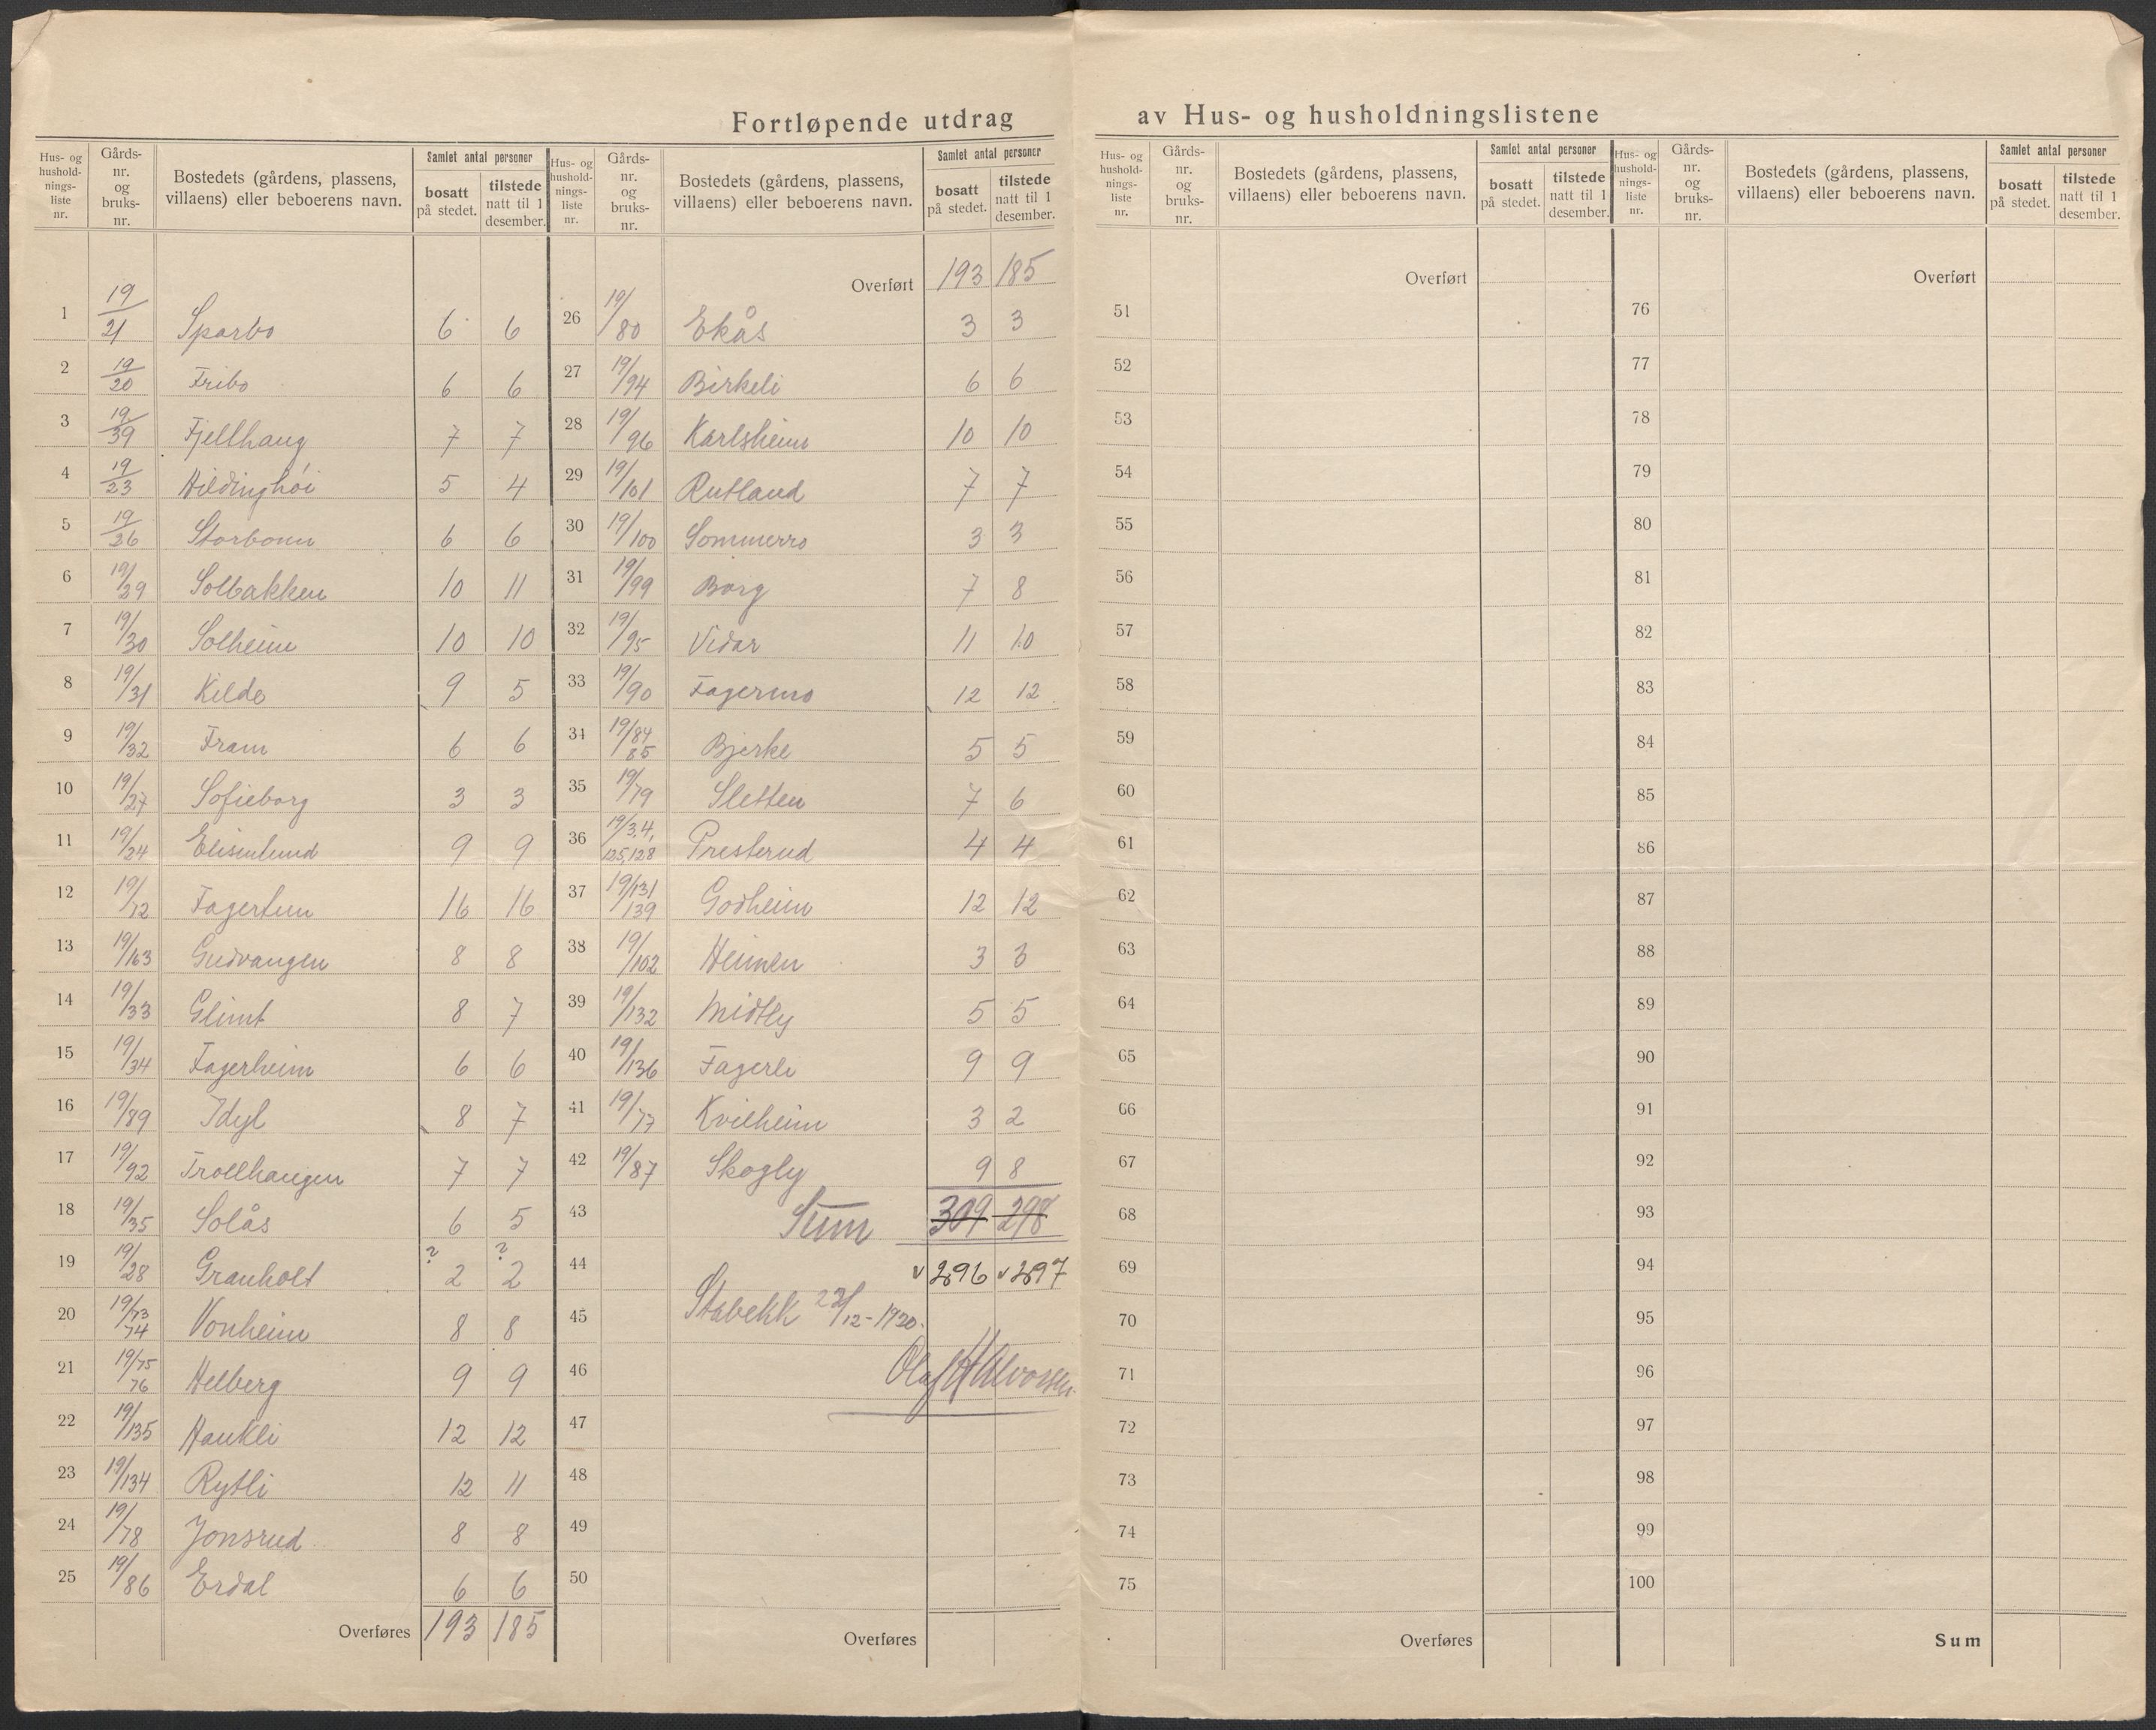 Fortløpende utdrag av Hus- og husholdningslistene
Hus- og hushold-nings-liste nr. Gårds-nr. og bruks-nr. Bostedets (gårdens, plassens, villaens) eller beboerens navn. Samlet antal personer bosatt på stedet. tilstede natt til 1 desember.
1 19/21 Sparbo 6 6
2 19/20 Fribo 6 6
3 19/39 Fjellhaug 7 7
4 19/23 Hildinghöi 5 4
5 19/26 Storbonn 6 6
6 19/29 Solbakken 10 11
7 19/30 Solheim 10 10
8 19/31 Kilde 9 5
9 19/32 Fram 6 6
10 19/27 Sofieborg 3 3
11 19/24 Elisenlund 9 9
12 19/12 Fagertun 16 16
13 19/163 Gudvangen 8 8
14 19/33 Glimt 8 7
15 19/34 Fagerheim 6 6
16 19/89 Idyl 8 7
17 19/92 Trollhaugen 7 7
18 19/35 Solås 6 5
19 19/28 Granholt ? 2 ? 2
20 19/73 74 Vonheim 8 8
21 19/75 76 Helberg 9 9
22 19/135 Haukli 12 12
23 19/134 Rytli 12 11
24 19/78 Jonsrud 8 8
25 19/86 Erdal 6 6
Overføres 193 185
Hus- og hushold-nings-liste nr. Gårds-nr. og bruks-nr. Bostedets (gårdens, plassens, villaens) eller beboerens navn. Samlet antal personer bosatt på stedet. tilstede natt til 1 desember.
Overført 193 185
26 19/80 Ekås 3 3
27 19/94 Birkeli 6 6
28 19/96 Karlsheim 10 10
29 19/101 Rutland 7 7
30 19/100 Sommerro 3 3
31 19/99 Borg 7 8
32 19/95 Vidar 11 10
33 19/90 Fagermo 12 12
34 19/84 85 Bjerke 5 5
35 19/79 Sletten 7 6
36 19/3,4, 125,128 Presterud 4 4
37 19/131 139 Godheim 12 12
38 19/102 Heimen 3 3
39 19/132 Midtly 5 5
40 19/136 Fagerli 9 9
41 19/77 Kvilheim 3 2
42 19/87 Skogly 9 8
43 Sum 309 298
44 v 296 v 297
45 Stabekk 22/12-1920.
46 Olaf Halvorsen
47
48
49
50
Overføres
Hus- og hushold-nings-liste nr. Gårds-nr. og bruks-nr. Bostedets (gårdens, plassens, villaens) eller beboerens navn. Samlet antal personer bosatt på stedet. tilstede natt til 1 desember.
Overført
51
52
53
54
55
56
57
58
59
60
61
62
63
64
65
66
67
68
69
70
71
72
73
74
75
Overføres
Hus- og hushold-nings-liste nr. Gårds-nr. og bruks-nr. Bostedets (gårdens, plassens, villaens) eller beboerens navn. Samlet antal personer bosatt på stedet. tilstede natt til 1 desember.
Overført
76
77
78
79
80
81
82
83
84
85
86
87
88
89
90
91
92
93
94
95
96
97
98
99
100
Sum